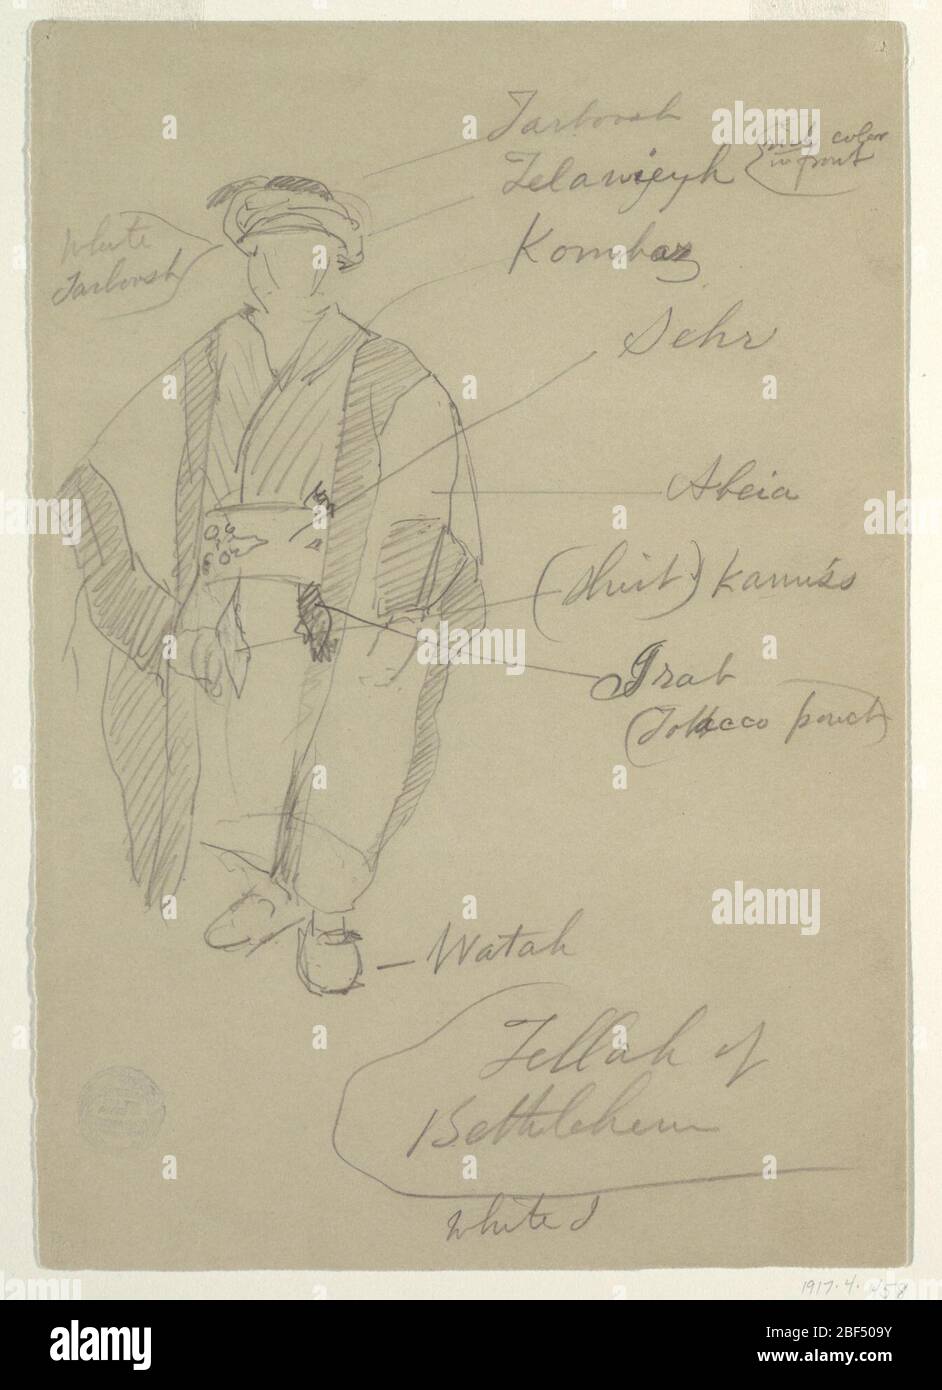 Tarboosh
Telawiyeyh
color
in front
Kombaz
White
Tarboosh
Sehr
Abeia
(Shirt) Kamiss
Grab
(Tobacco pouch)
Watah
Fellah of
Bethlehem
White
1917.4.
alamy
Image ID: 2BF509Y
www.alamy.com